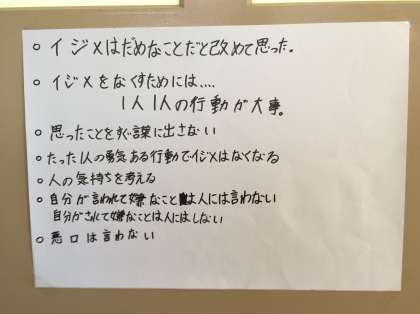 ○ イジメはだめなことだと改めて思った.
○ イジメをなくすためには....
1人1人の行動が大事。
○ 思ったことをすぐ言葉に出さない
○ たった1人の勇気ある行動でイジメはなくなる
○ 人の気持ちを考える
○ 自分が言われて嫌なことは人には言わない
自分がされて嫌なことは人にはしない
○ 悪口は言わない